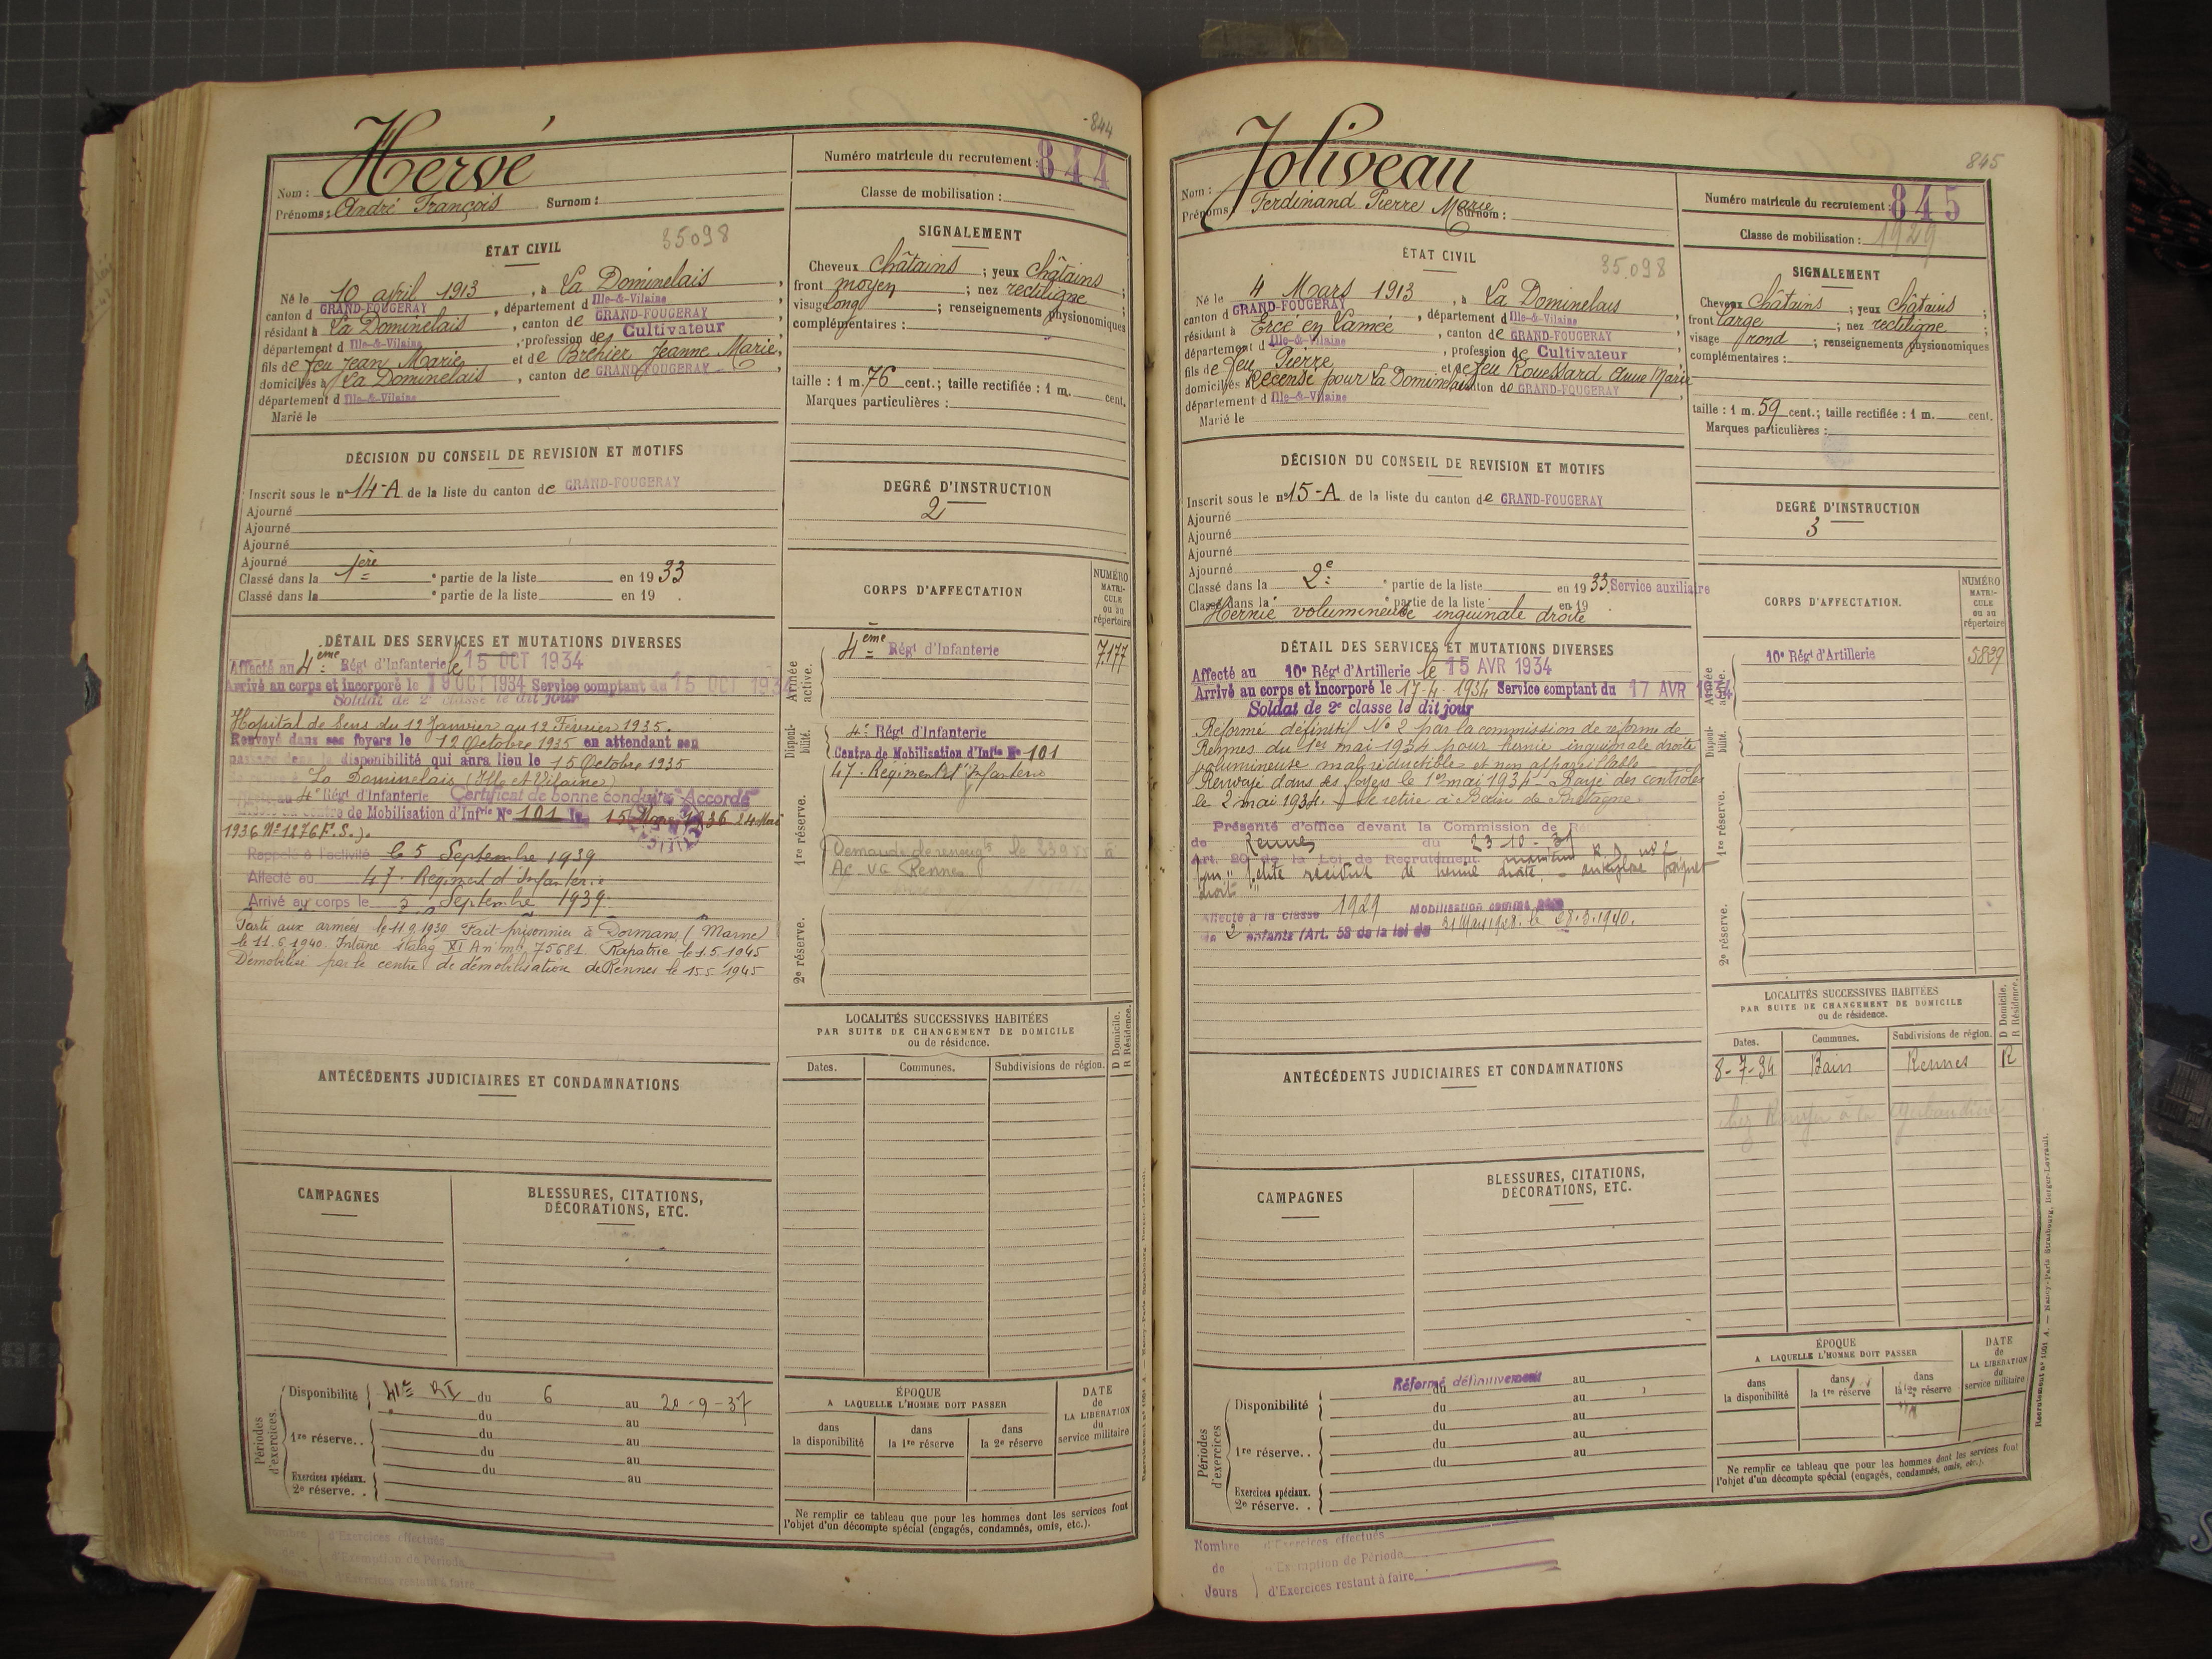 844
Hervé
Nom :
Prénoms : André François Surnom :
Numéro matricule du recrutement : 844
Classe de mobilisation :
ÉTAT CIVIL
35098
Né le 10 avril 1913, à La Dominelais,
canton d GRAND-FOUGERAY, département d Ille-&-Vilaine,
résidant à La Dominelais, canton de GRAND-FOUGERAY,
département d Ille-&-Vilaine, profession de Cultivateur,
fils de feu Jean Marie et de Bréhier Jeanne Marie,
domiciliés à La Dominelais, canton de GRAND-FOUGERAY,
département d Ille-&-Vilaine
Marié le
SIGNALEMENT
Cheveux châtains ; yeux châtains ;
front moyen ; nez rectiligne ;
visage long ; renseignements physionomiques
complémentaires :
taille : 1 m. 76 cent. ; taille rectifiée : 1 m. cent.
Marques particulières :
DÉCISION DU CONSEIL DE REVISION ET MOTIFS
Inscrit sous le n° 14-A de la liste du canton de GRAND-FOUGERAY
Ajourné
Ajourné
Ajourné
Ajourné
Classé dans la 1ère partie de la liste en 1933
Classé dans la partie de la liste en 19 .
DEGRÉ D'INSTRUCTION
2
CORPS D'AFFECTATION
NUMÉRO MATRICULE ou au répertoire
Armée active.
4ème Régt d'Infanterie 7177
Disponibilité.
4e Régt d'Infanterie
Centre de Mobilisation d'Infie No 101
47e Régiment d'Infanterie
1re réserve.
Ac - VG Rennes
2e réserve.
DÉTAIL DES SERVICES ET MUTATIONS DIVERSES
Affecté au 4ème Régt d'Infanterie le 15 OCT 1934
Arrivé au corps et incorporé le 19 OCT 1934 Service comptant du 15 OCT 1934
Soldat de 2e classe le dit jour
Hopital de Sens du 12 Janvier au 12 Février 1935.
Renvoyé dans ses foyers le 12 Octobre 1935 en attendant son
passage dans la disponibilité qui aura lieu le 15 Octobre 1935
La Dominelais (Ille et Vilaine)
4e Régt d'Infanterie Certificat de bonne conduite Accordé
Centre de Mobilisation d'Infrie No 101 le 15 Mars 1936 24 Mai
1936 No 1276 F.S.).
Rappelé à l'activité le 5 Septembre 1939
Affecté au 47e Régiment d'Infanterie
Arrivé au corps le 5 Septembre 1939.
Parti aux armées le 11.9.1939. Fait prisonnier à Dormans (Marne)
le 11.6.1940. Interné stalag XI A n° mle 75681. Rapatrié le 1.5.1945
Démobilisé par le centre de démobilisation de Rennes le 15 5 1945
LOCALITÉS SUCCESSIVES HABITÉES
PAR SUITE DE CHANGEMENT DE DOMICILE
ou de résidence.
D Domicile.
R Résidence.
Dates. Communes. Subdivisions de région.
ANTÉCÉDENTS JUDICIAIRES ET CONDAMNATIONS
CAMPAGNES
BLESSURES, CITATIONS,
DÉCORATIONS, ETC.
Périodes d'exercices.
Disponibilité 41e RI du 6 au 20-9-37
du au
1re réserve. . du au
du au
du au
Exercices spéciaux. au
2e réserve. .
ÉPOQUE
A LAQUELLE L'HOMME DOIT PASSER
dans la disponibilité
dans la 1re réserve
dans la 2e réserve
DATE de LA LIBÉRATION du service militaire
Ne remplir ce tableau que pour les hommes dont les services font
l'objet d'un décompte spécial (engagés, condamnés, omis, etc.).
Nombre d'Exercices effectués
de d'Exemption de Période
Jours d'Exercices restant à faire
845
Joliveau
Nom :
Prénoms : Ferdinand Pierre Marie Surnom :
Numéro matricule du recrutement : 845
Classe de mobilisation : 1929
ÉTAT CIVIL
35.098
Né le 4 Mars 1913, à La Dominelais
canton d GRAND-FOUGERAY, département d Ille-&-Vilaine
résidant à Ercé en Lamée, canton de GRAND-FOUGERAY
département d Ille-&-Vilaine, profession de Cultivateur
fils de feu Pierre et de feu Rouessard Anne Marie
domiciliés à Recensé pour La Dominelais canton de GRAND-FOUGERAY,
département d Ille-&-Vilaine
Marié le
SIGNALEMENT
Cheveux châtains ; yeux châtains ;
front large ; nez rectiligne ;
visage rond ; renseignements physionomiques
complémentaires :
taille : 1 m. 59 cent. ; taille rectifiée : 1 m. cent.
Marques particulières :
DÉCISION DU CONSEIL DE REVISION ET MOTIFS
Inscrit sous le n° 15-A de la liste du canton de GRAND-FOUGERAY
Ajourné
Ajourné
Ajourné
Ajourné
Classé dans la 2e partie de la liste en 1933 Service auxiliaire
Classé dans la partie de la liste en 19
Hernie volumineuse inguinale droite
DEGRÉ D'INSTRUCTION
3
CORPS D'AFFECTATION.
NUMÉRO MATRICULE ou au répertoire
Armée active.
10e Régt d'Artillerie 5839
Disponibilité.
1re réserve.
2e réserve.
DÉTAIL DES SERVICES ET MUTATIONS DIVERSES
Affecté au 10e Régt d'Artillerie le 15 AVR 1934
Arrivé au corps et incorporé le 17-4-1934 Service comptant du 17 AVR 1934
Soldat de 2e classe le dit jour
Réformé définitif No 2 par la commission de réforme de
Rennes du 1er mai 1934 pour hernie inguinale droite
volumineuse mal réductible et non appareillable
Renvoyé dans ses foyers le 1er mai 1934. Rayé des contrôles
le 2 mai 1934. Se retire à Bain de Bretagne.
Présenté d'office devant la Commission de
de Rennes du 23-10-39
Art. 20 de la Loi de Recrutement maintenu R.D. no 2
petite récidive de hernie droite
droit
Affecté à la classe 1929 Mobilisation comme père
de 2 enfants (Art. 58 de la loi du 31 Mars 1928. le 28.3.1940.
LOCALITÉS SUCCESSIVES HABITÉES
PAR SUITE DE CHANGEMENT DE DOMICILE
ou de résidence.
D Domicile.
R Résidence.
Dates. Communes. Subdivisions de région.
8-7-34 Bain Rennes R
ANTÉCÉDENTS JUDICIAIRES ET CONDAMNATIONS
CAMPAGNES
BLESSURES, CITATIONS,
DÉCORATIONS, ETC.
Périodes d'exercices
Réformé définitivement
Disponibilité du au
du au
du au
1re réserve. . du au
du au
Exercices spéciaux.
2e réserve. .
ÉPOQUE
A LAQUELLE L'HOMME DOIT PASSER
dans la disponibilité
dans la 1re réserve
dans la 2e réserve
DATE de LA LIBÉRATION du service militaire
Ne remplir ce tableau que pour les hommes dont les services font
l'objet d'un décompte spécial (engagés, condamnés, omis, etc.).
Recrutement n° 1051 A. — Nancy-Paris-Strasbourg, Berger-Levrault.
Nombre d'Exercices effectués
de d'Exemption de Période
Jours d'Exercices restant à faire